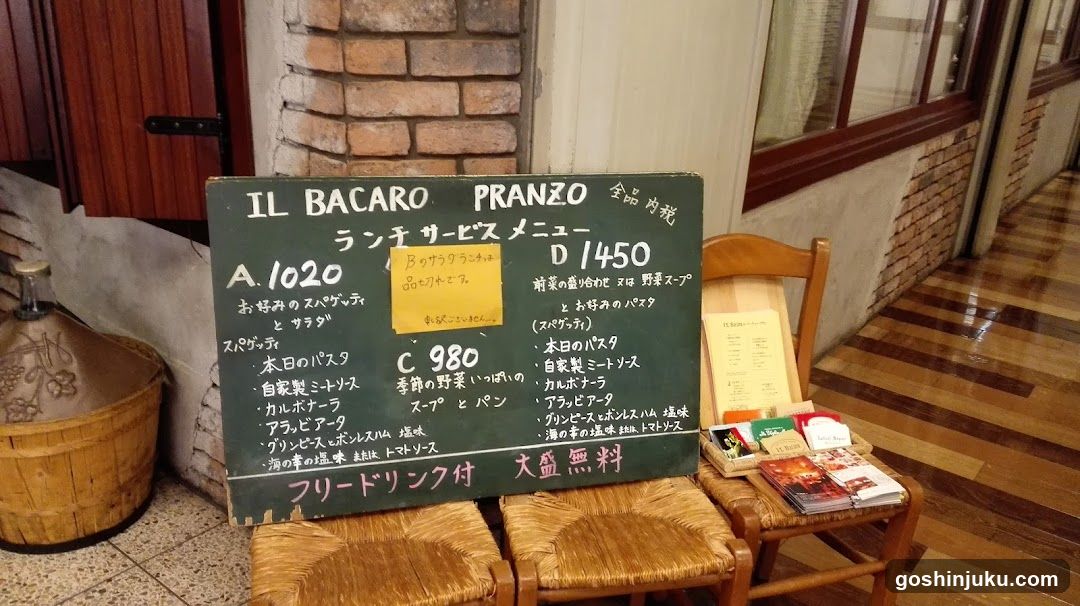 IL BACARO PRANZO 全品内税
ランチサービスメニュー
A. 1020
お好みのスパゲッティ
と サラダ
スパゲッティ
・本日のパスタ
・自家製ミートソース
・カルボナーラ
・アラッビアータ
・グリンピースとボンレスハム 塩味
・海の幸の塩味 または トマトソース
Bのサラダランチは
品切れです。
申し訳ございません。
C 980
季節の野菜いっぱいの
スープ と パン
D 1450
前菜の盛り合わせ 又は 野菜スープ
と お好みのパスタ
(スパゲッティ)
・本日のパスタ
・自家製ミートソース
・カルボナーラ
・アラッビアータ
・グリンピースとボンレスハム 塩味
・海の幸の塩味 または トマトソース
フリードリンク付 大盛無料
goshinjuku.com